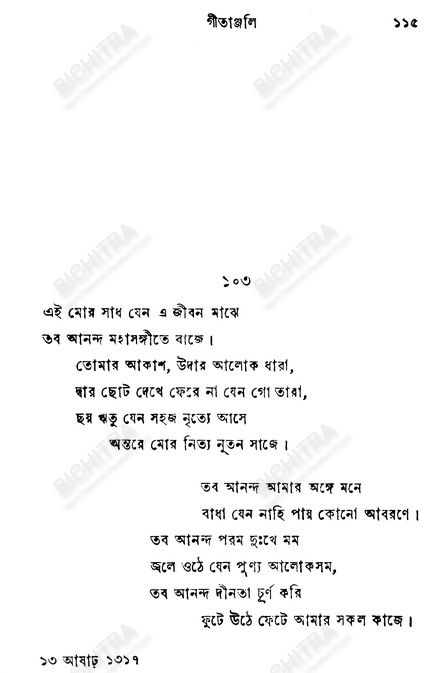 গীতাঞ্জলি ১১৫
১০৩
এই মোর সাধ যেন এ জীবন মাঝে
তব আনন্দ মহাসঙ্গীতে বাজে।
তোমার আকাশ, উদার আলোক ধারা,
দ্বার ছোট দেখে ফেরে না যেন গো তারা,
ছয় ঋতু যেন সহজ নৃত্যে আসে
অন্তরে মোর নিত্য নূতন সাজে।
তব আনন্দ আমার অঙ্গে মনে
বাধা যেন নাহি পায় কোনো আবরণে।
তব আনন্দ পরম দুঃখে মম
জ্বলে ওঠে যেন পুণ্য আলোকসম,
তব আনন্দ দীনতা চূর্ণ করি
ফুটে উঠে ফেটে আমার সকল কাজে।
১৩ আষাঢ় ১৩১৭
BICHITRA
BICHITRA
BICHITRA
BICHITRA
BICHITRA
BICHITRA
BICHITRA
BICHITRA